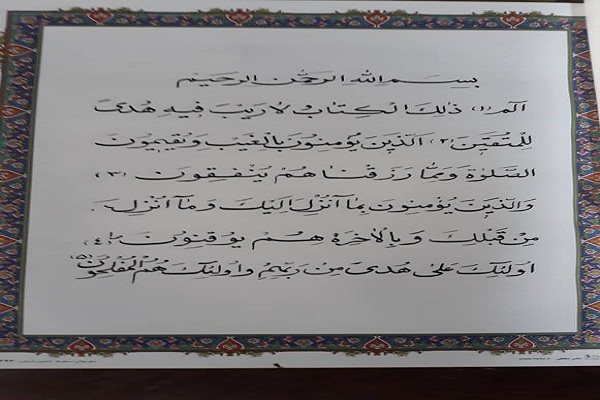 بسم الله الرحمن الرحیم
آلم (۱) ذلِكَ الْكِتابُ لا رَیْبَ فیهِ هُدیً
لِلْمُتَّقینَ (۲) اَلَّذینَ یُؤْمِنُونَ بِالْغَیْبِ وَ یُقیمُونَ
الصَّلوٰةَ وَ مِمّا رَزَقْناهُمْ یُنْفِقُونَ (۳)
وَ الَّذینَ یُؤْمِنُونَ بِمآ اُنْزِلَ اِلَیْكَ وَ مآ اُنْزِلَ
مِنْ قَبْلِكَ وَ بِالْاخِرَةِ هُمْ یُوقِنُونَ (۴)
اُولئِكَ عَلیٰ هُدیً مِنْ رَبِّهِمْ وَ اُولئِكَ هُمُ الْمُفْلِحُونَ (۵)